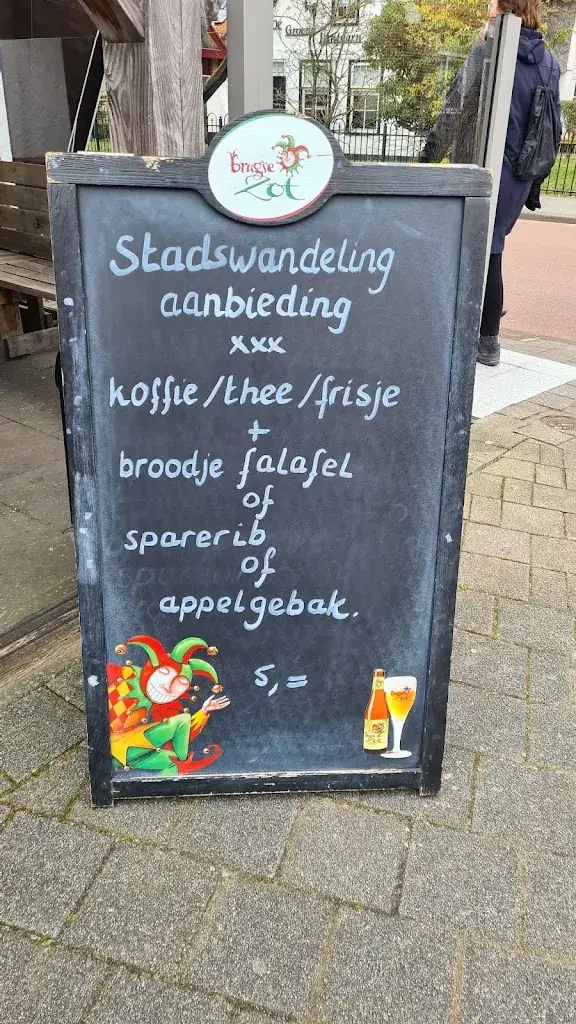 brugse
Zot
Stadswandeling
aanbieding
xxx
koffie/thee/frisje
+
broodje falafel
of
sparerib
of
appelgebak.
5,=